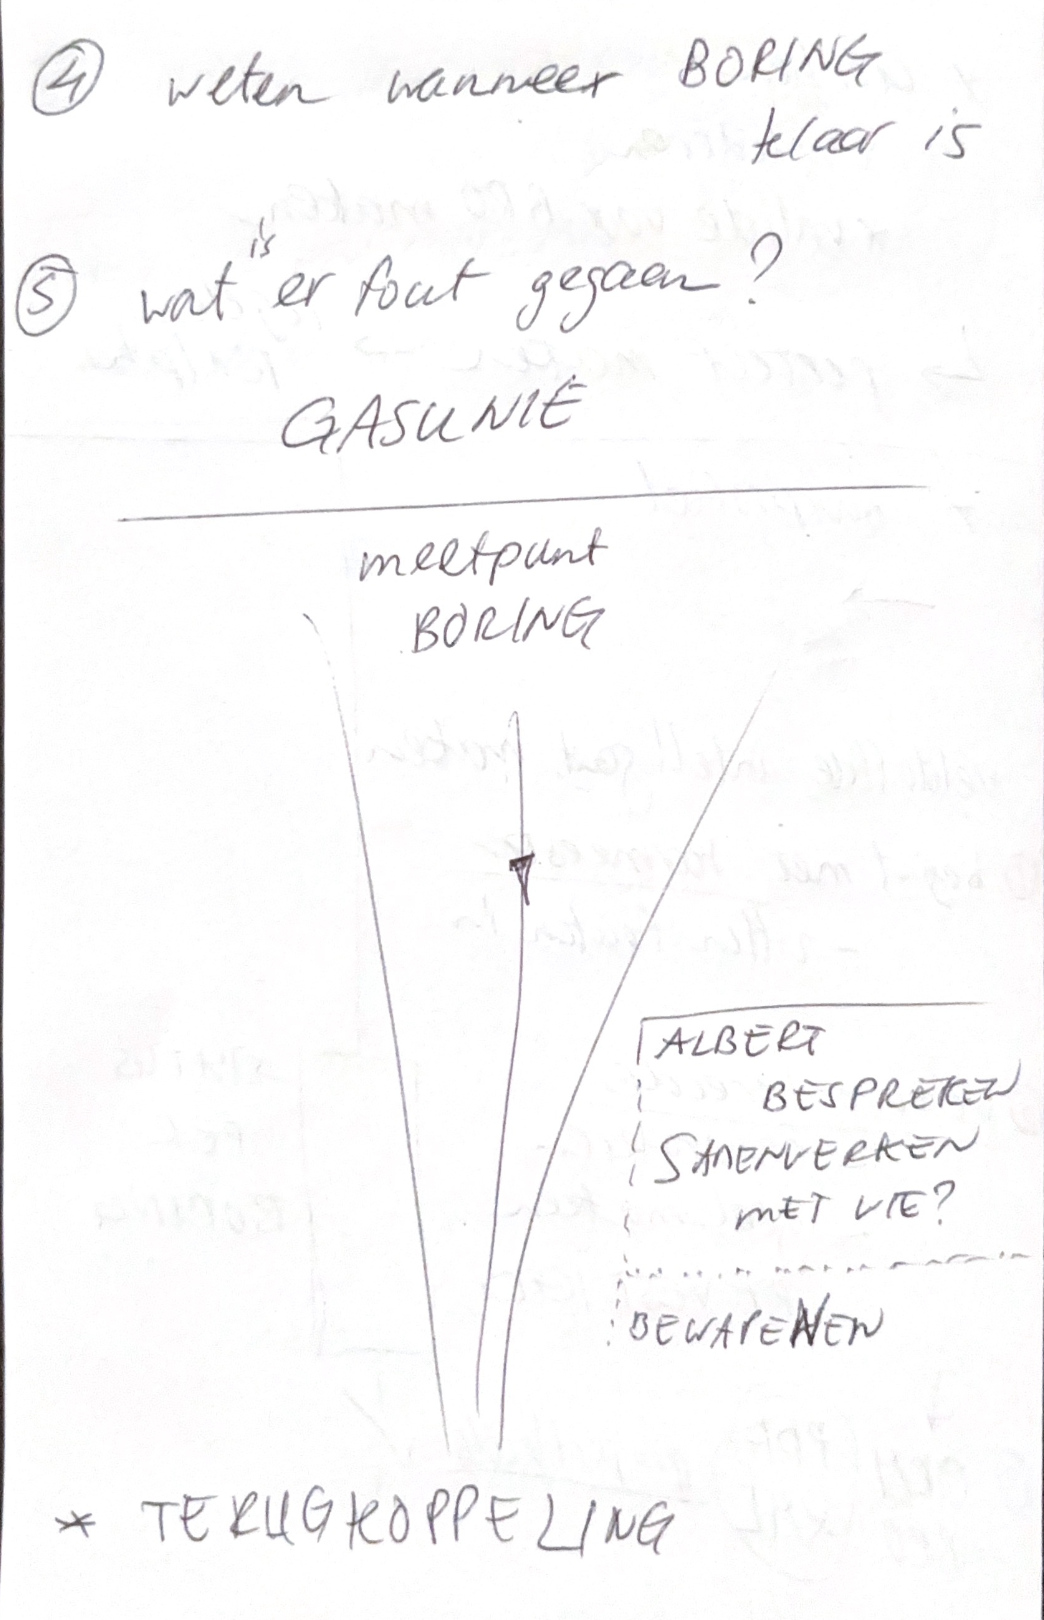 ④ weten wanneer BORING
klaar is
⑤ wat is er fout gegaan?
GASUNIE
meetpunt
BORING
ALBERT
BESPREKEN
SAMENWERKEN
MET WIE?
BEWAPENEN
* TERUGKOPPELING